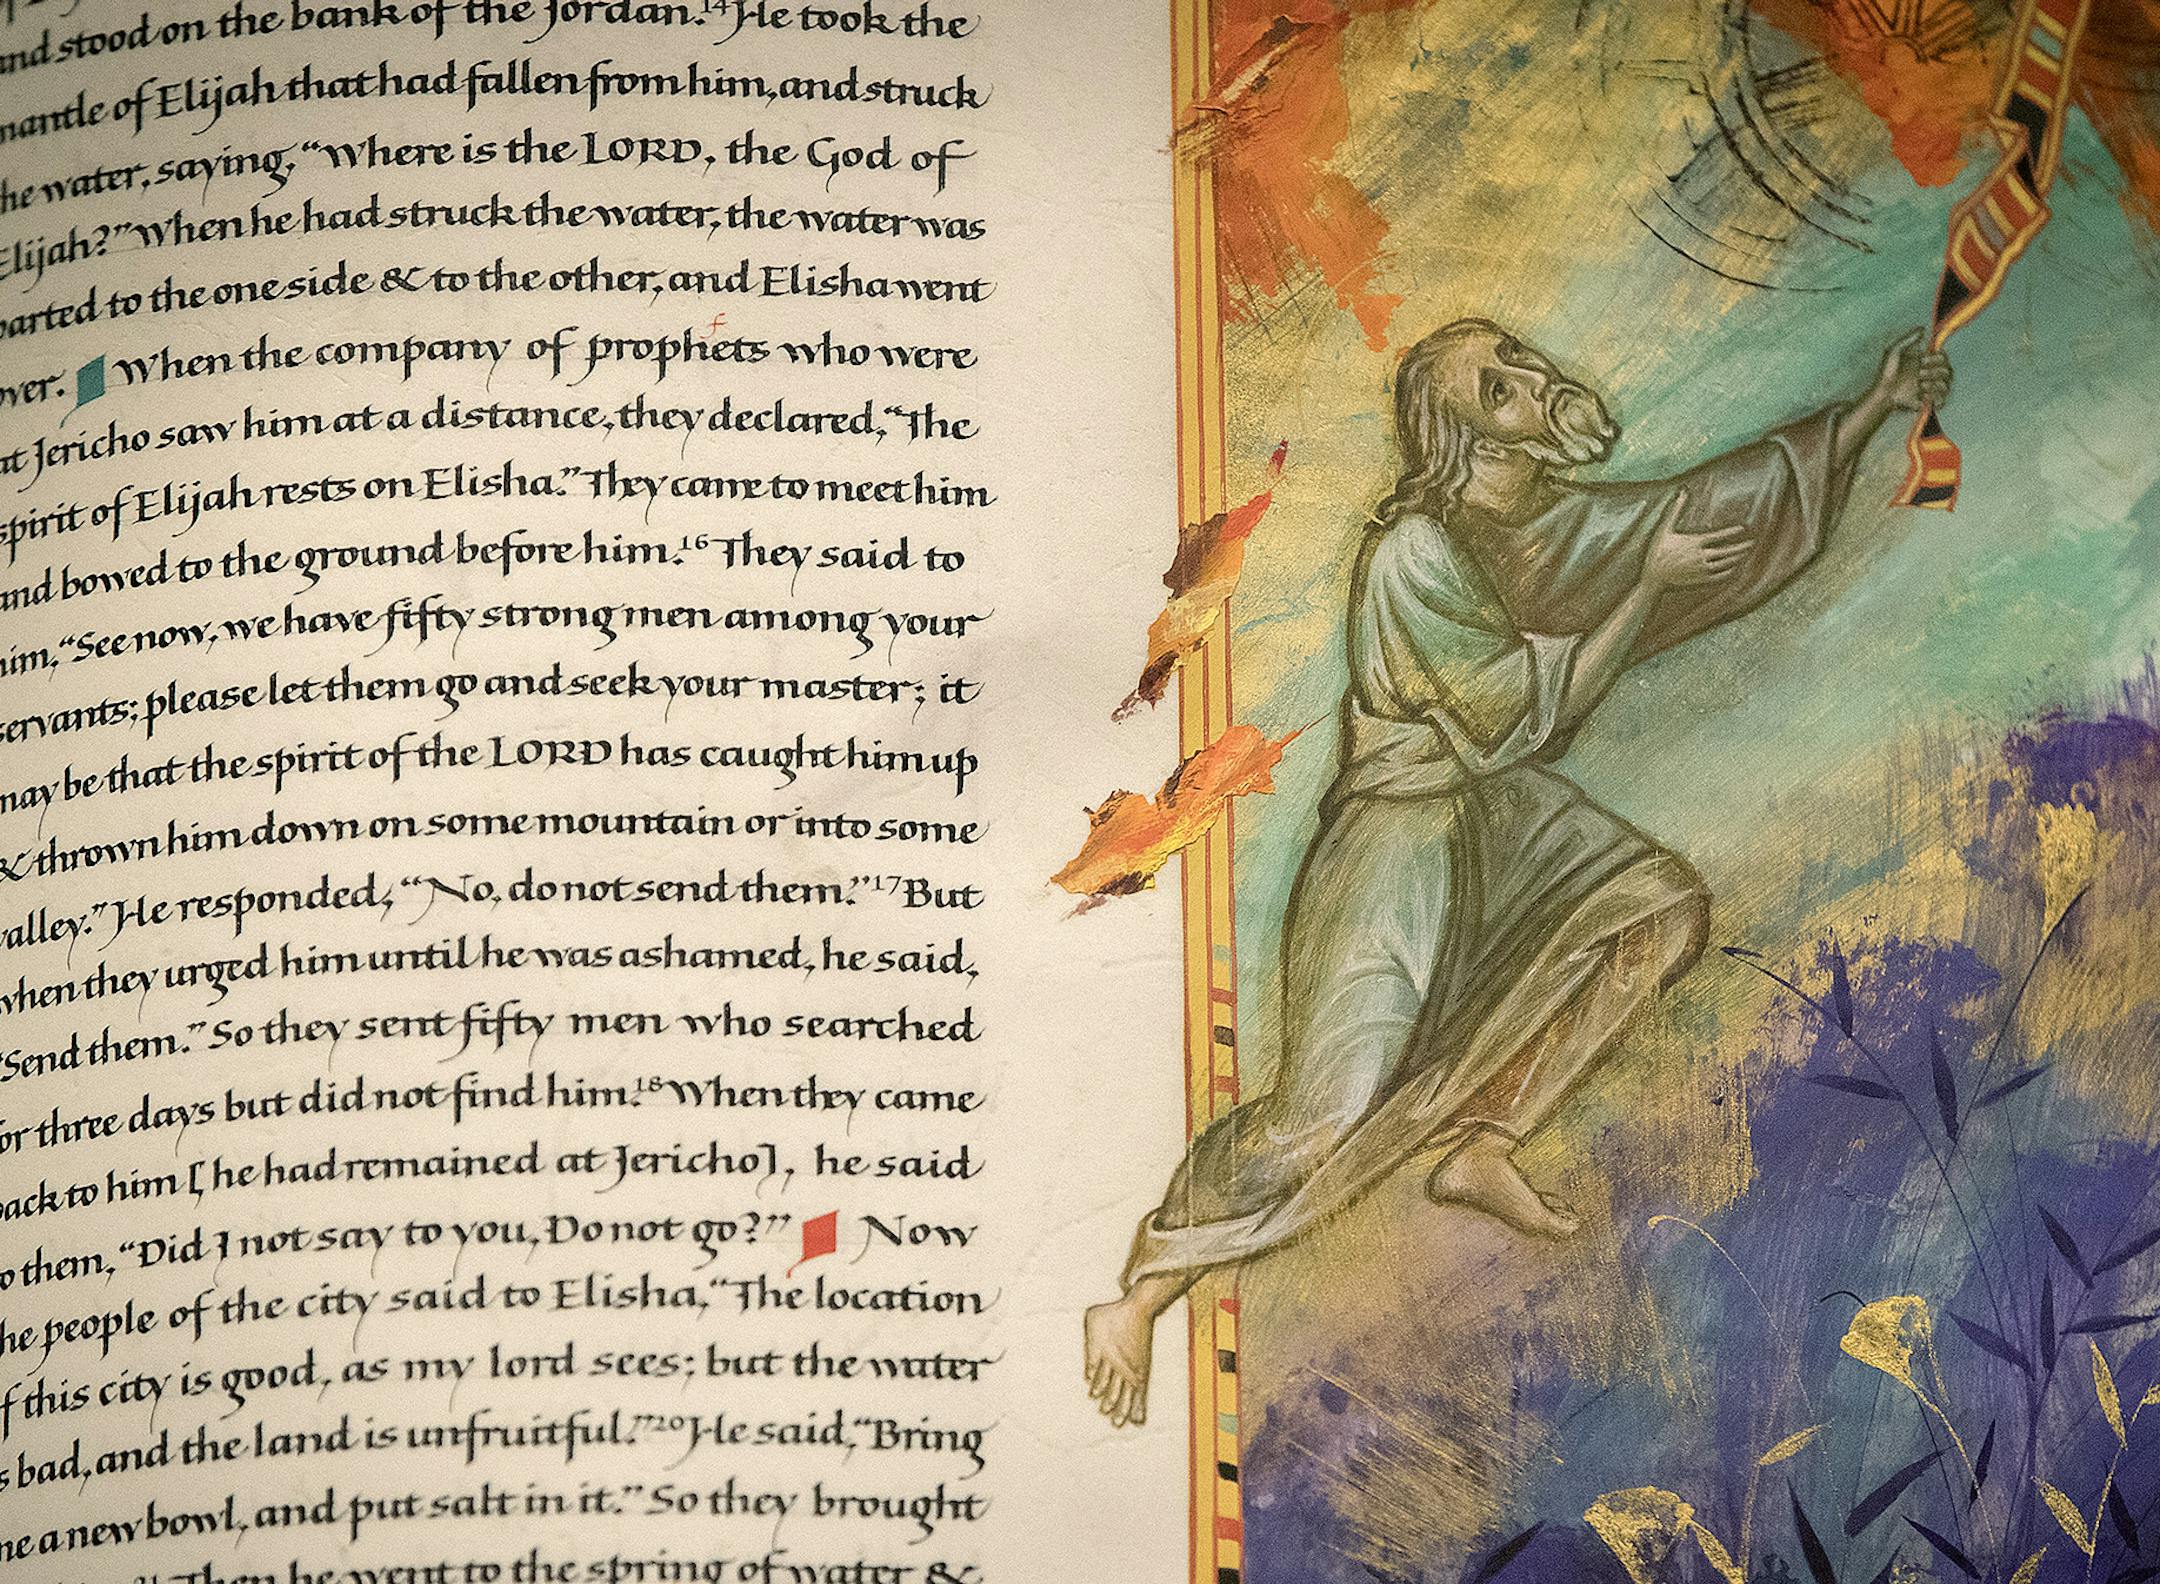 and stood on the bank of the Jordan. 14 He took the
mantle of Elijah that had fallen from him, and struck
the water, saying, “Where is the LORD, the God of
Elijah?” When he had struck the water, the water was
parted to the one side & to the other, and Elisha went
over. When the company of prophets who were
f
at Jericho saw him at a distance, they declared, “The
spirit of Elijah rests on Elisha.” They came to meet him
and bowed to the ground before him. 16 They said to
him, “See now, we have fifty strong men among your
servants; please let them go and seek your master; it
may be that the spirit of the LORD has caught him up
& thrown him down on some mountain or into some
valley.” He responded, “No, do not send them.” 17 But
when they urged him until he was ashamed, he said,
“Send them.” So they sent fifty men who searched
for three days but did not find him. 18 When they came
back to him [he had remained at Jericho], he said
to them, “Did I not say to you, Do not go?” Now
the people of the city said to Elisha, “The location
of this city is good, as my lord sees; but the water
is bad, and the land is unfruitful.” 20 He said, “Bring
me a new bowl, and put salt in it.” So they brought
21 Then he went to the spring of water &